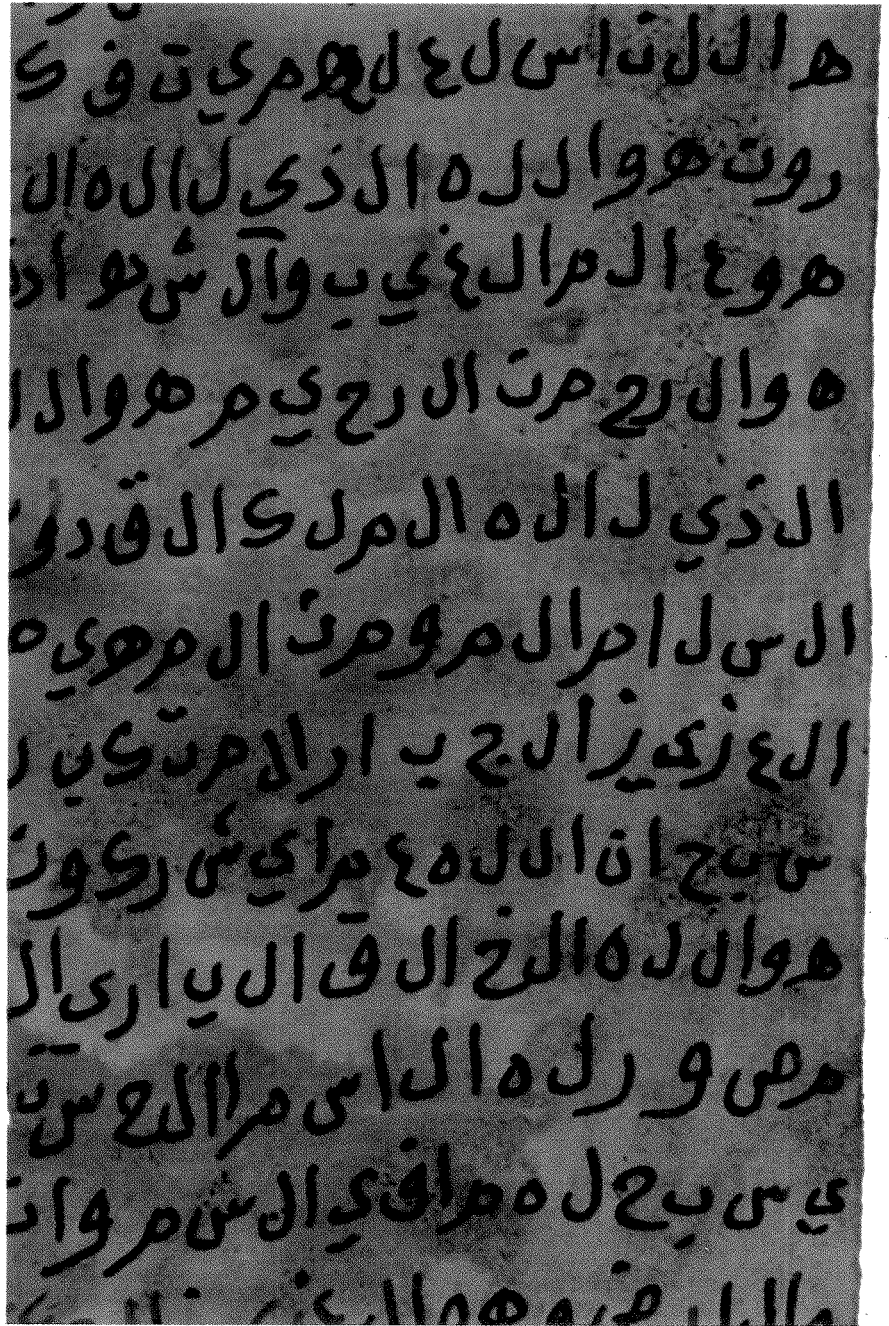 ه ا ل ل ن ا س ل ع ل ه م ي ت ف ك
ر و ن ه و ا ل ل ه ا ل ذ ي ل ا ل ه ا ل
ه و ع ا ل م ا ل غ ي ب و ا ل ش ه ا د
ه و ا ل ر ح م ن ا ل ر ح ي م ه و ا ل ل
ا ل ذ ي ل ا ل ه ا ل م ل ك ا ل ق د و
ا ل س ل ا م ا ل م و م ن ا ل م ه ي م
ا ل ع ز ي ز ا ل ج ب ا ر ا ل م ت ك ب ر
س ب ح ا ن ا ل ل ه ع م ا ي ش ر ك و ن
ه و ا ل ل ه ا ل خ ا ل ق ا ل ب ا ر ى ا ل
م ص و ر ل ه ا ل ا س م ا ا ل ح س ن
ي س ب ح ل ه م ا ف ي ا ل س م و ا ت
و ا ل ا ر ض و ه و ا ل ع ز ي ز ا ل ح ك